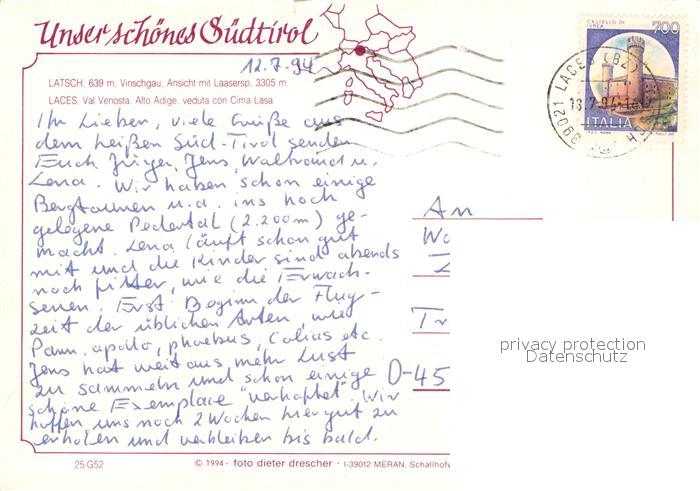 Unser schönes Südtirol
12.7.94
LATSCH, 639 m. Vinschgau, Ansicht mit Laasersp. 3305 m.
LACES. Val Venosta. Alto Adige. veduta con Cima Lasa.
CASTELLO DI
IVREA
700
ITALIA
39021 LACES (BZ)
Ihr Lieben, viele Grüße aus
dem heißen Süd-Tirol senden
Euch Jürgen, Jens, Waltraud u.
Lena. Wir haben schon einige
Bergtouren u.a. ins hoch
gelegene Pedertal (2.200m) ge-
macht. Lena läuft schon gut
mit und die Kinder sind abends
noch fitter, wie die Erwach-
senen. Erst Beginn der Flug-
zeit der üblichen Arten, wie
Parn. apollo, phoebus, Colias etc.
Jens hat weitaus mehr Lust
zu sammeln und schon einige
schöne Exemplare "verhaftet". Wir
hoffen uns noch 2 Wochen hier gut zu
erholen und verbleiben bis bald.
An
D-45
privacy protection
Datenschutz
25-G52
© 1994 - foto dieter drescher - I-39012 MERAN, Schallhofw